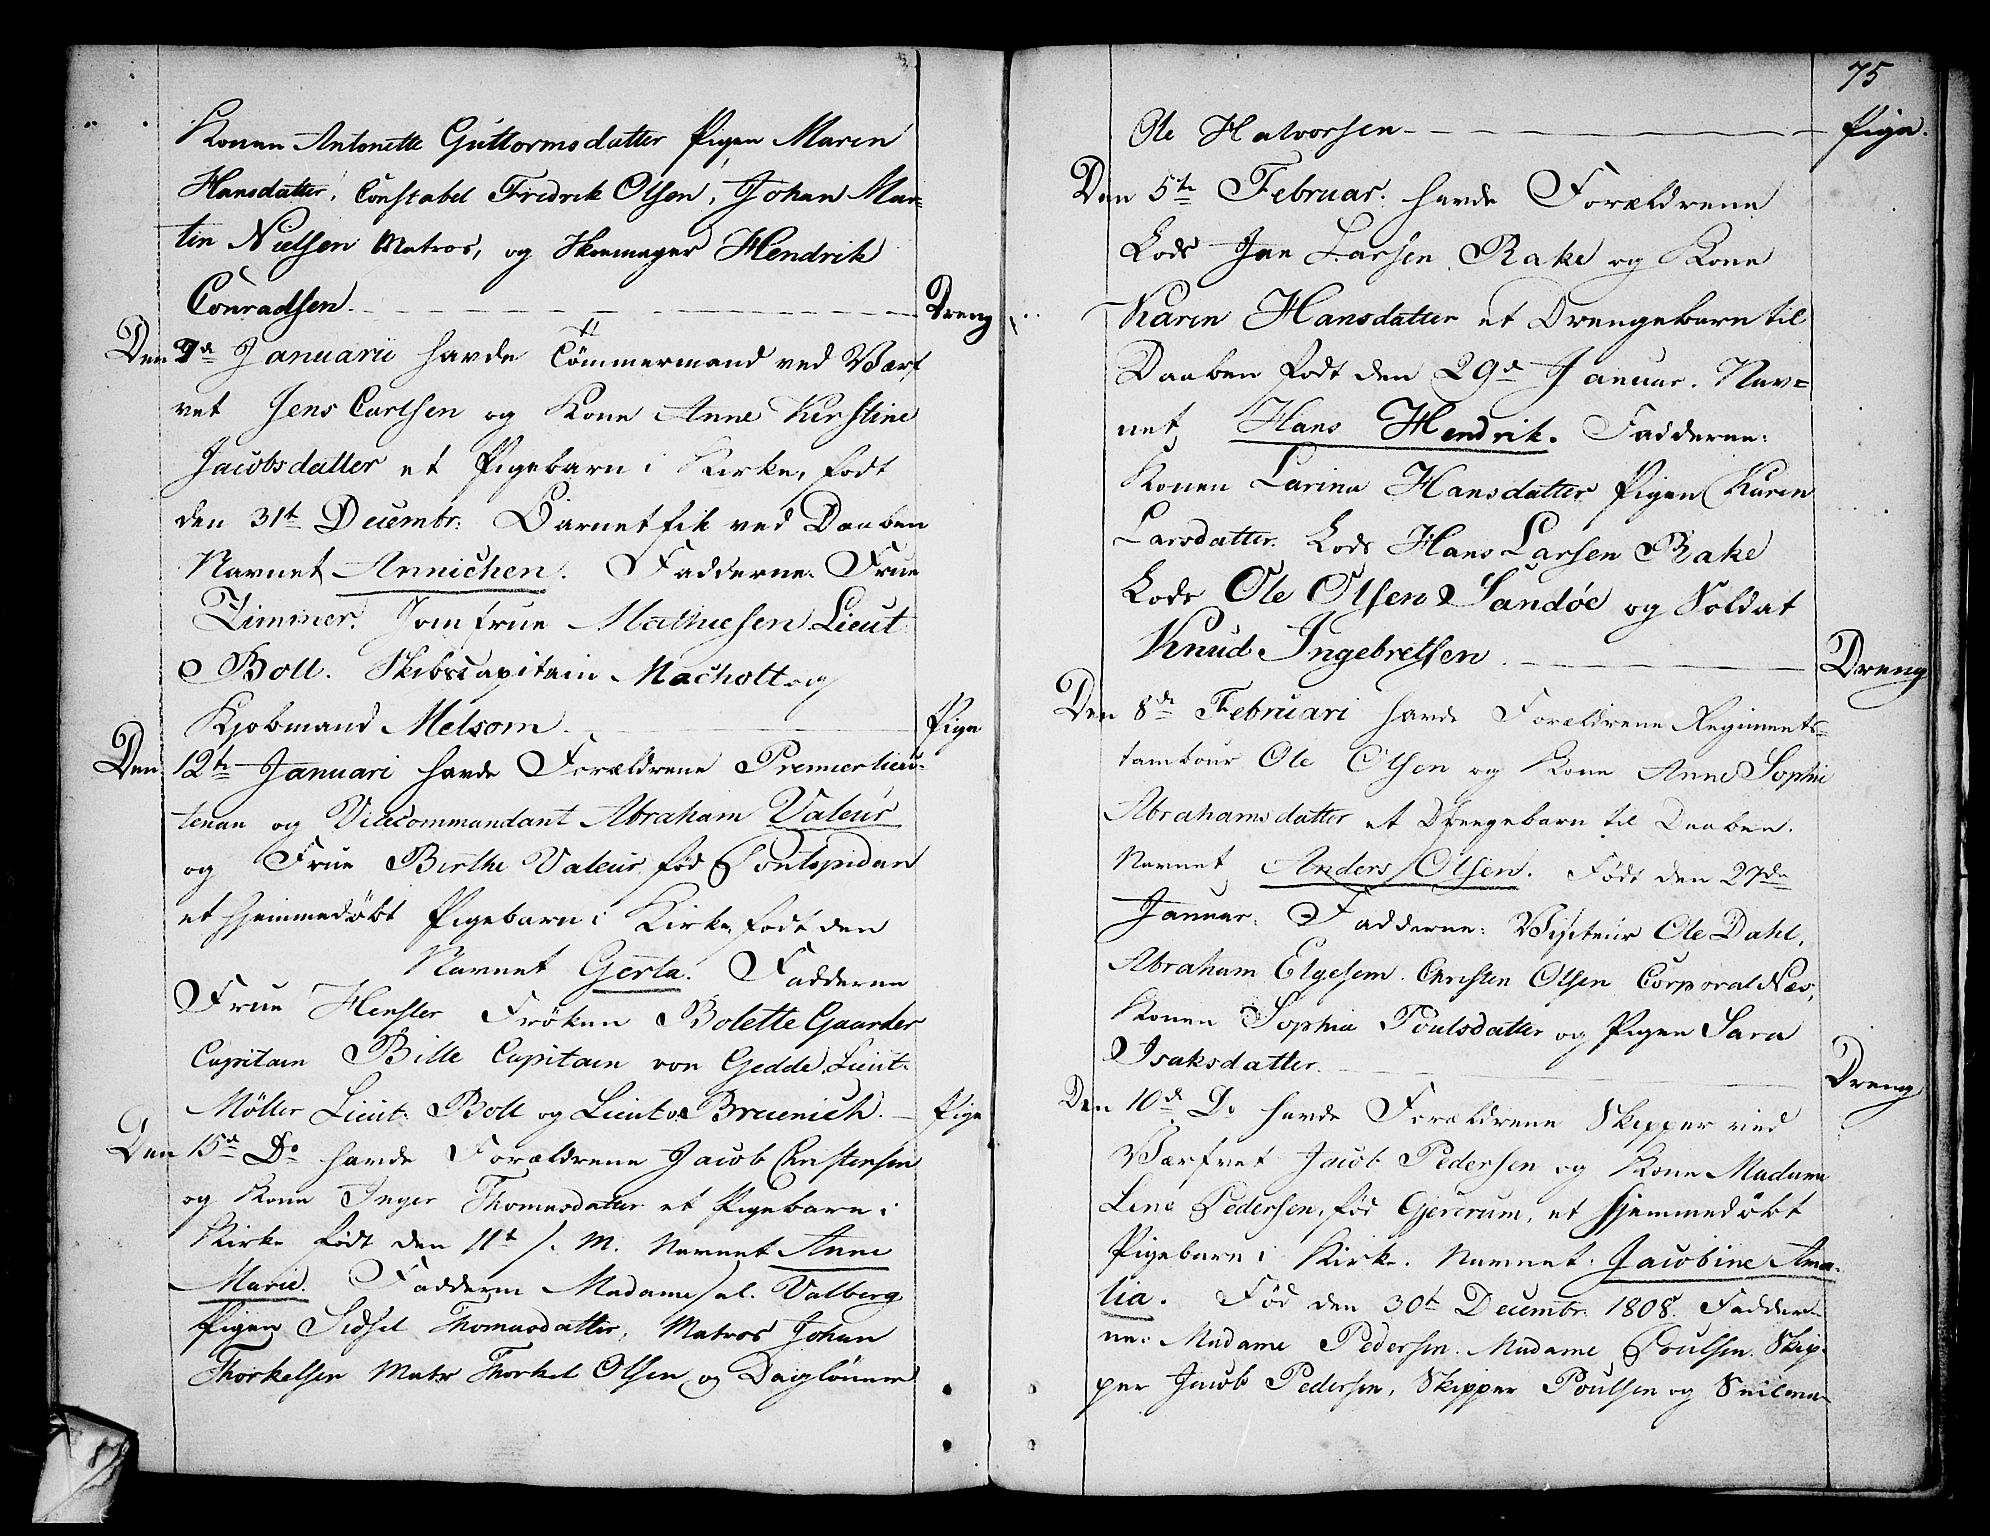 Konen Antonette Guttormsdatter Pigen Maren
Hansdatter, Constabel Fredrik Olsen, Johan Mar-
tin Nielsen Matros, og Skomager Hendrik
Conradsen. Dreng
Den 7d Januarii havde Tömmermand ved Værf
vet Jens Carlsen og Kone Anne Kirstine
Jacobsdatter et Pigebarn i Kirke, født
den 31t Decembr: Barnet fik ved Daaben
Navnet Annichen. Fadderne: Frue
Zimmer. Jomfrue Mathiesen Lieut
Boll. Skibscapitain Macholt og
Kjøbmand Melsom. Pige
Den 12te Januari havde Forældrene Premierlieu-
tenan og Vicecommandant Abraham Valeur
og Frue Birthe Valeur fød Pontopidan
et hjemmedøbt Pigebarn i Kirke, født den
Navnet Gerta. Fadderne
Frue Hensler Frøken Bolette Gaarder
Capitain Bille Capitain von Gedde, Lieut.
Möller Lieut: Boll og Lieut v. Bruenich. Pige
Den 15d Do havde Forældrene Jacob Christensen
og Kone Inger Thomasdatter et Pigebarn i
Kirke født den 11t s. M. Navnet Anne
Marie. Fadderne Madame sal. Valberg
Pigen Sidsel Thomasdatter, Matros Johan
Thorkelsen Matr Thorkel Olsen og Daglönner
75
Ole Halvorsen Pige.
Den 5te Februar. havde Forældrene
Lods Jan Larsen Rake og Kone
Karen Hansdatter et Drengebarn til
Daaben født den 29d Januar. Nav=
net, Hans Hendrik. Fadderne:
Konen Larina Hansdatter Pigen Karen
Larsdatter. Lods Hans Larsen Rake
Lods Ole Olsen Sandøe og Soldat
Knud Ingebretsen. Dreng
Den 8de Februari havde Forældrene Regiments-
tambour Ole Olsen og Kone Anne Sophie
Abrahamsdatter et Drengebarn til Daaben.
Navnet, Anders Olsen. Født den 27de
Januar. Fadderne: Visiteur Ole Dahl,
Abraham Elgesem. Christen Olsen Corporal Næs,
Konen Sophia Poulsdatter og Pigen Sara
Isaksdatter. Dreng
Den 10d Do havde Forældrene Skipper ved
Værfvet Jacob Pedersen og Kone Madame
Lene Pedersen, fød Gjercrum, et hjemmedøbt
Pigebarn i Kirke. Navnet. Jacobine Ama-
lia. Fød den 30t Decembr: 1808. Fadder-
ne: Madame Pedersen. Madame Poulsen. Skip-
per Jacob Pedersen, Skipper Poulsen og Seilma-